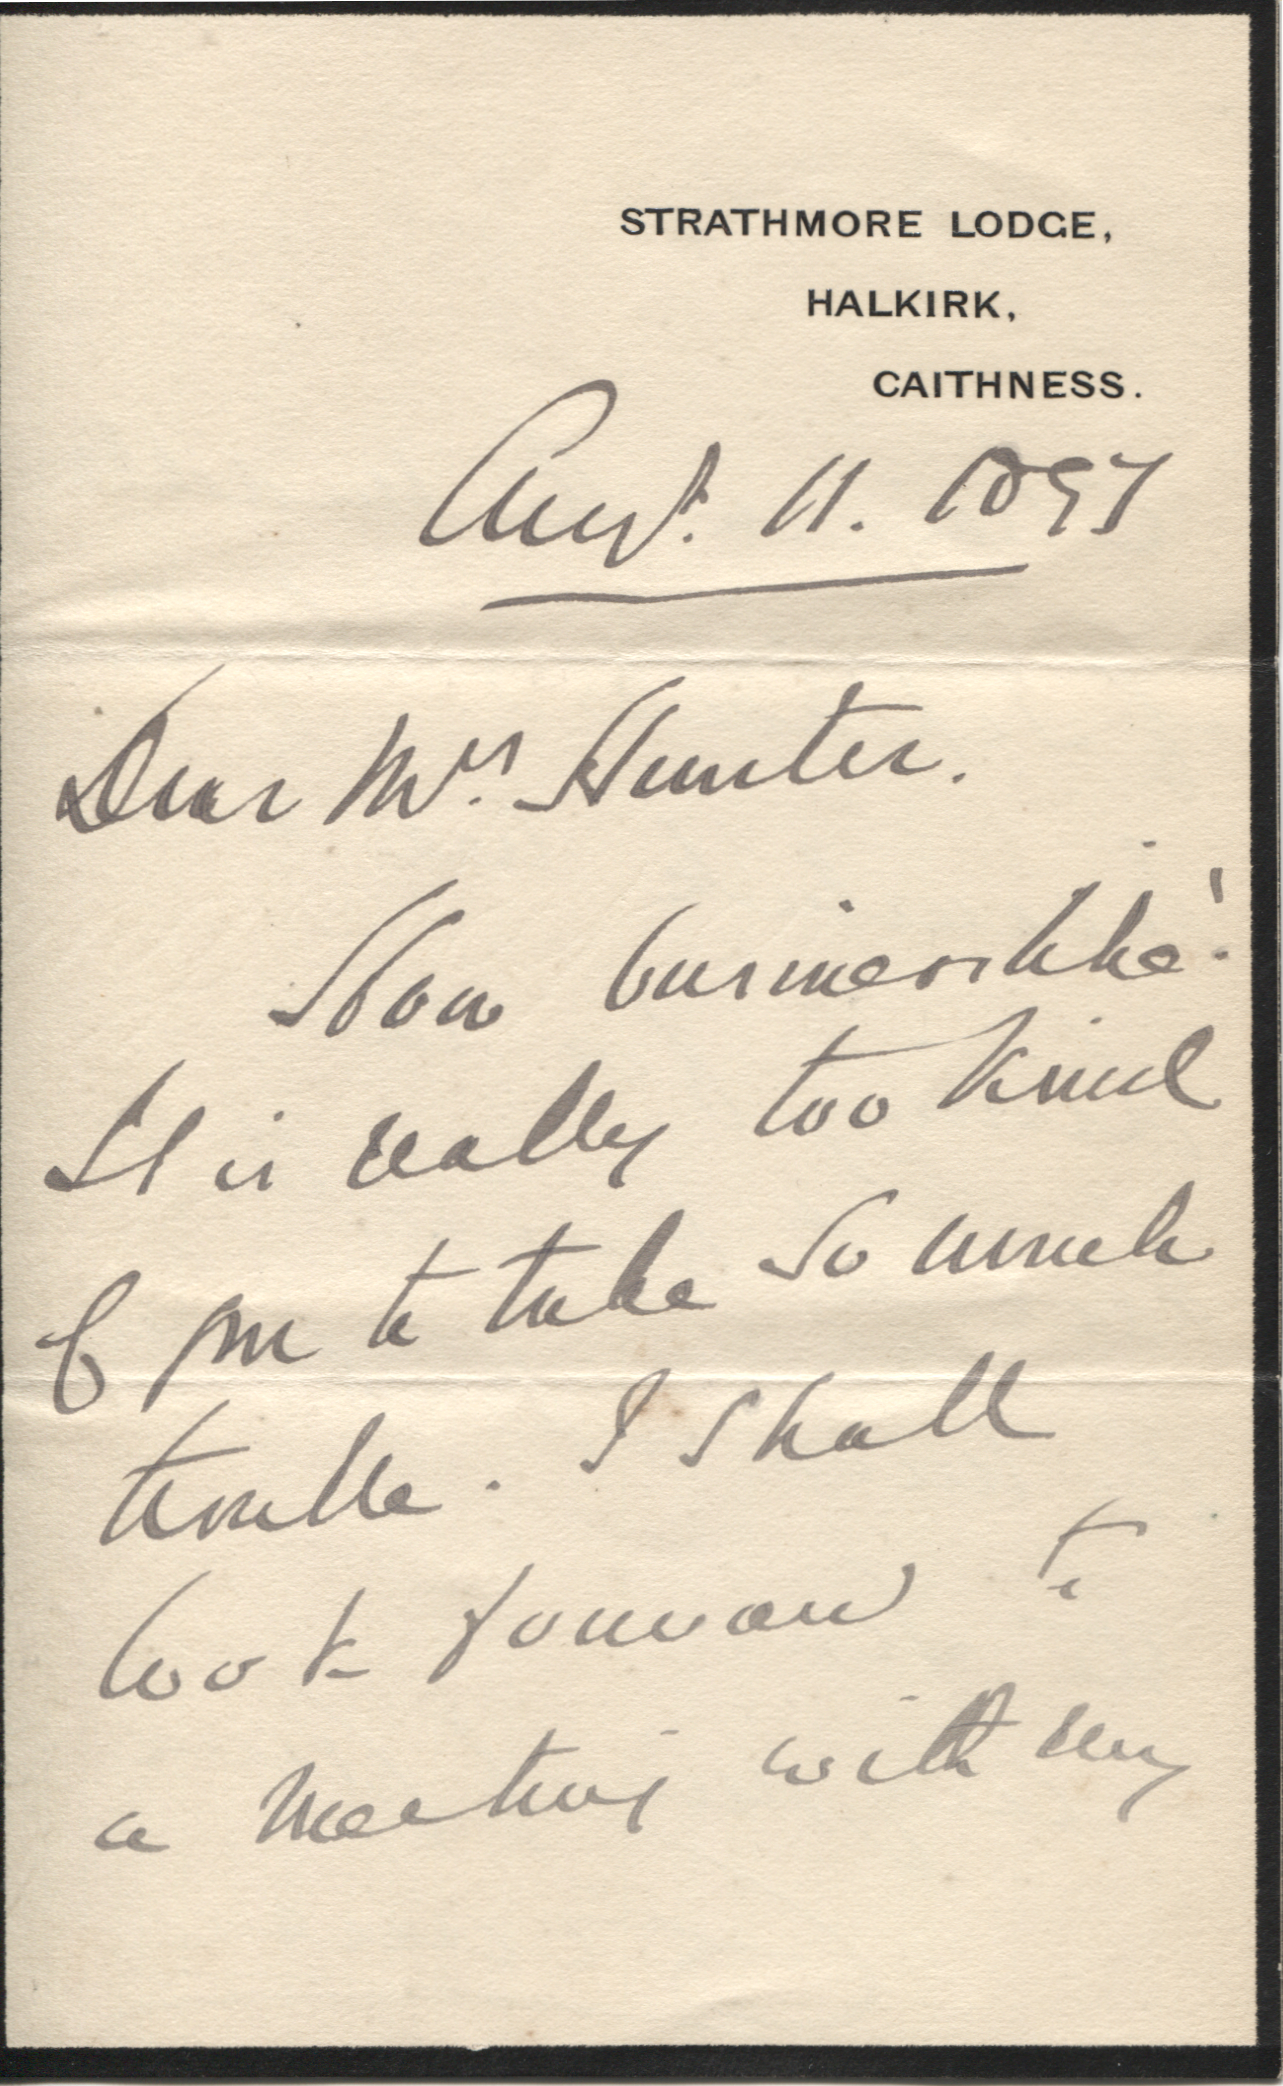 STRATHMORE LODGE,
HALKIRK,
CAITHNESS.
Augt. 11. 1897
Dear Mrs. Hunter.
How businesslike!
It is really too kind
of you to take so much
trouble. I shall
look forward to
a meeting with very